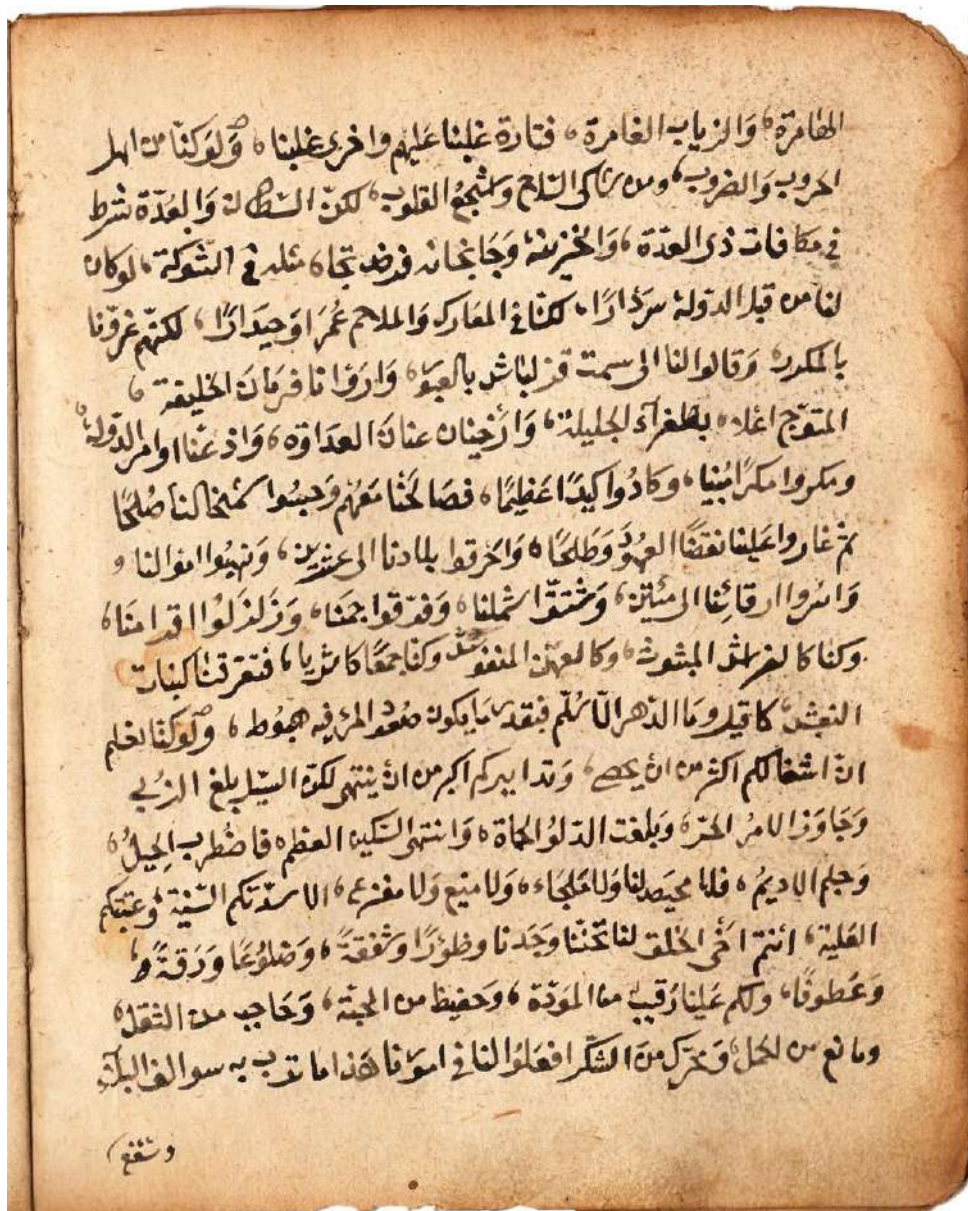 المقامرة، وَالزياب الغامرة، فتارة غلبنا عَليهم واخرى غلبنا، وَلوَ كنّا من اهل
الحروب وَالضروب، ومن شاكى السّلاح واشجع القلوب، لكنّ وَالعُدّة شرط
في مكافات ذى العدّة، وَالخزينة في الشّوكة، لوكان
لنا من قبل الدّولة سردارًا، لكنّا في المعارك وَالملاحم عُمرَا وَحيدَارًا، لكنّهم غرّونا
بالمكر، وَقالوا لنا الى سمت قزلباش بالعبوَر، وَارَوا نا فرمان الخليفة،
المتوّج اعلاه بطغرآء الجليلة، وَارَْخينا عنان العداوَة، وَاذعنّا اوامر الدّولة،
ومكروا مكرًا مُبينا، وَكادُوا كيدًا عَظيمًا، فصَالحنَا مَعَهُم وَحسبُوا لنا صُلحًا
ثم غاروا عَلينا نقضًا العهُود وَطلحًا، وَاحَرقوا بلادنا الى عشرين، وَنهبُوا اموالنا و
وَاسَروا ارقائنا الى مئتين، وَشتتوّا شملنا، وَفرّقوا جمعَنا، وَزَلزلُوا اقدامنَا،
وكنّا كالفراش المبثوث، وكالعهن المنفوش وكنّا جمعًا كا ثريا، فتفرقنا كبنات
النعش، كما قيل وما الدّهر الّا سُلّم فبقدر مَا يكون صعُود المرءِ فيه هبُوط، وَلوَكنّا نعلم
انّ اشغالكم اكثر من انْ يحصى، وتدابيركم اكبر من انْ ينتهى لكنّ السّيل بلغ الزُبى
وَجَاوَز الامرُ الحدّ، وَبلغت الدّلو الحماة، وَانتهى السّكين العظم، فاضطرب الحيلُ،
وَحلم الاديمُ، فلا محيصَ لنا وَلا مَلجاء، وَلا منيع وَلا مفزع، الا سدّتكم السّنيّة، وَعتبتكم
العَلية، انتم احَرى الخلق لنا تحنّنا وَجدنا وظؤرًا وَشفقةً، وَضلوُعًا وَرَقةً، و
وَعُطوفًا، ولكم عَلينا رَقيبٌ من الموَدّة، وَحفيظ من المحبّة، وَحَاجب من الثقل،
ومانع من الحمل، وَمحرّك من الشّكر افعَلوُا لنا في امورنا هذا ما تدرب به سوالف البلآء
وشفع